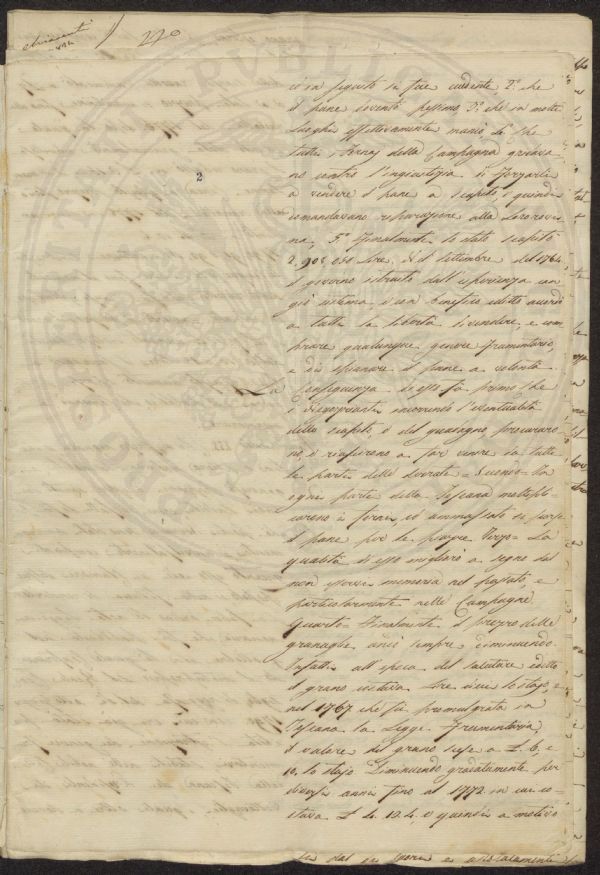 220
2
ci in seguito si fece evidente, 2.° che
il pane diventò pessimo 3.° che in molti
luoghi effettivamente mancò, 4. che
tutti i Fornaj della Campagna gridava-
no contro l'ingiustizia di forzarli
a vendere il pane a scapito, e quindi
domandavano riparazione alla loro rovi-
na, 5.° finalmente lo stato scapitò
2.908,050 Lire. Nel settembre del 1764.
il governo istruito dall'esperienza can-
giò sistema, e con benefico editto accordò
a tutti la libertà di vendere, e com-
prare qualunque genere frumentario,
e di spianare il pane a volontà
La conseguenza di esso fu primo che
i correndo l'eventualità
dello scapito, e del guadagno procuraro-
no, e riuscirono a far venire da tutte
le parti delle derrate = Secondo = In
ogni parte della Toscana moltipli-
carono i forni, ed ammassato si
il pane per le Terzo = La
qualità di esso migliorò a segno da
non esservi memoria nel passato, e
particolarmente nelle Campagne
Quarto Finalmente il prezzo delle
granaglie andò sempre diminuendo.
Infatti all'epoca del salutare editto
il grano costava Lire lo stajo, e
nel 1767 che fù promulgata in
Toscana la Legge Frumentaria,
il valore del grano scese a L. 6, e
10, lo stajo diminuendo gradatamente per
diversi anni fino al 1772 in cui co-
stava L 4. 12. 4. e quindi a motivo